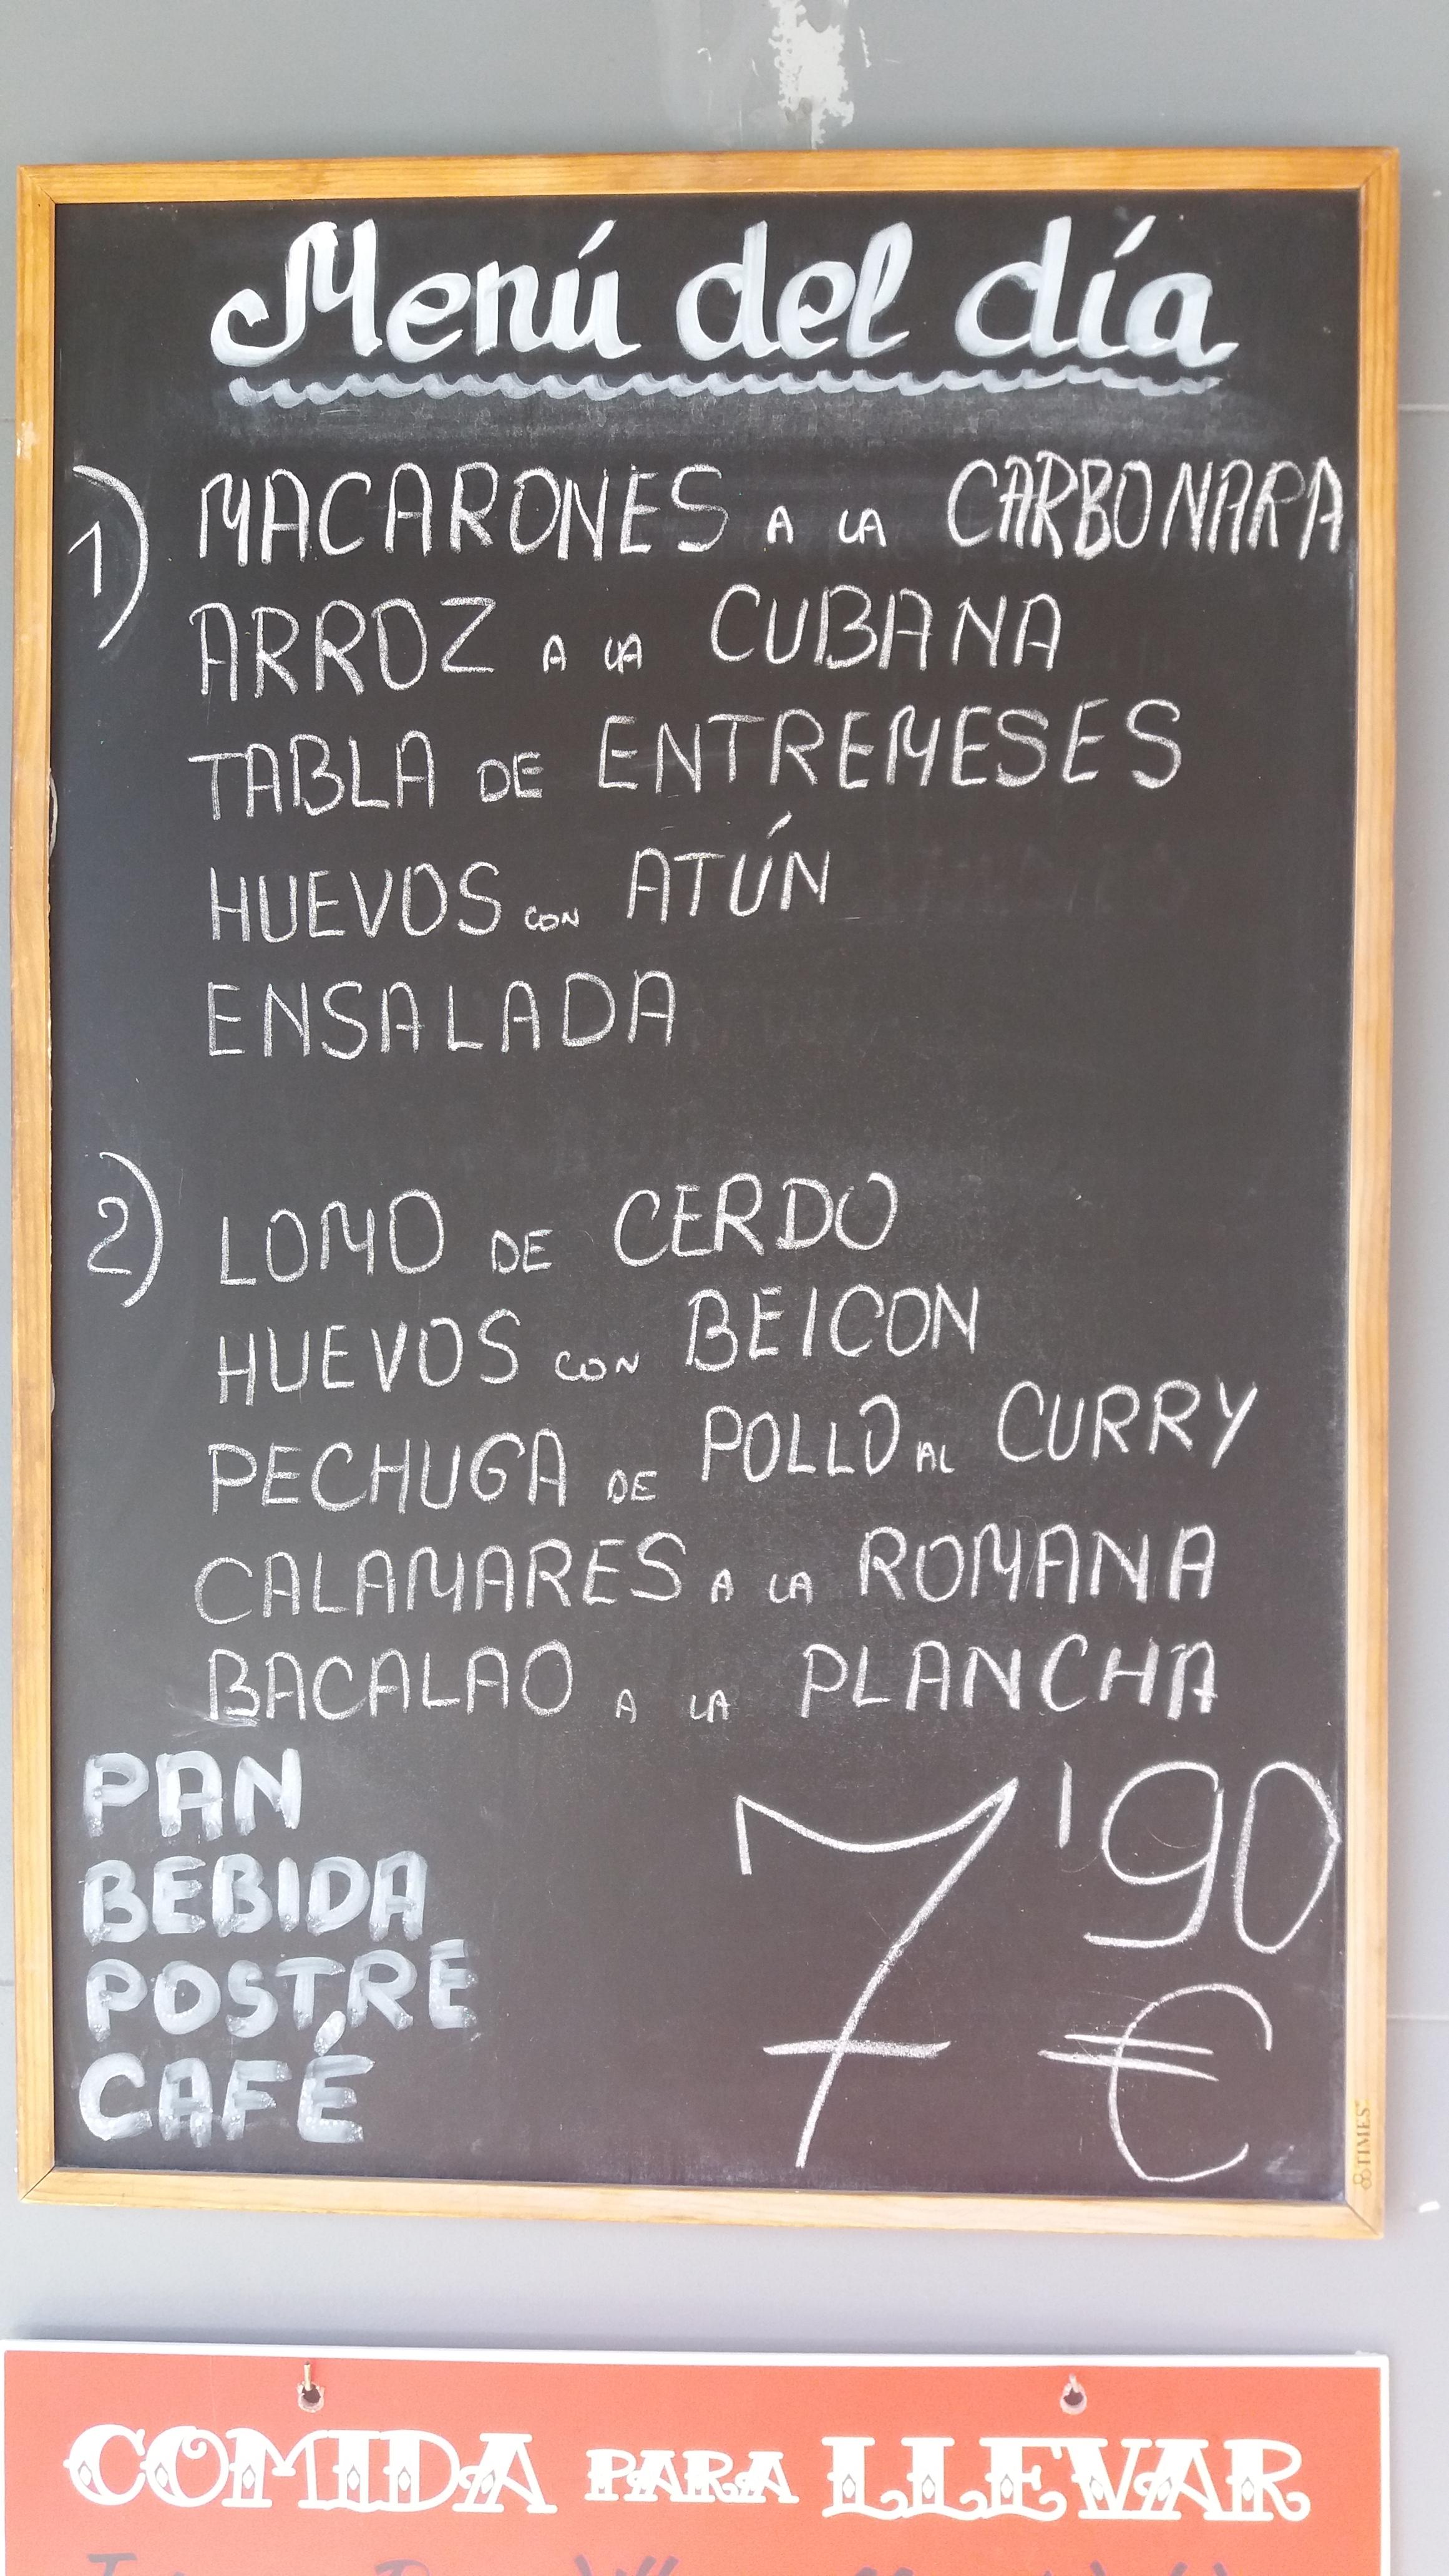 Menú del día
1) MACARONES A LA CARBONARA
ARROZ A LA CUBANA
TABLA DE ENTREMESES
HUEVOS CON ATÚN
ENSALADA
2) LOMO DE CERDO
HUEVOS CON BEICON
PECHUGA DE POLLO AL CURRY
CALAMARES A LA ROMANA
BACALAO A LA PLANCHA
PAN
BEBIDA
POSTRE
CAFÉ
7'90 €
TIMES
COMIDA PARA LLEVAR